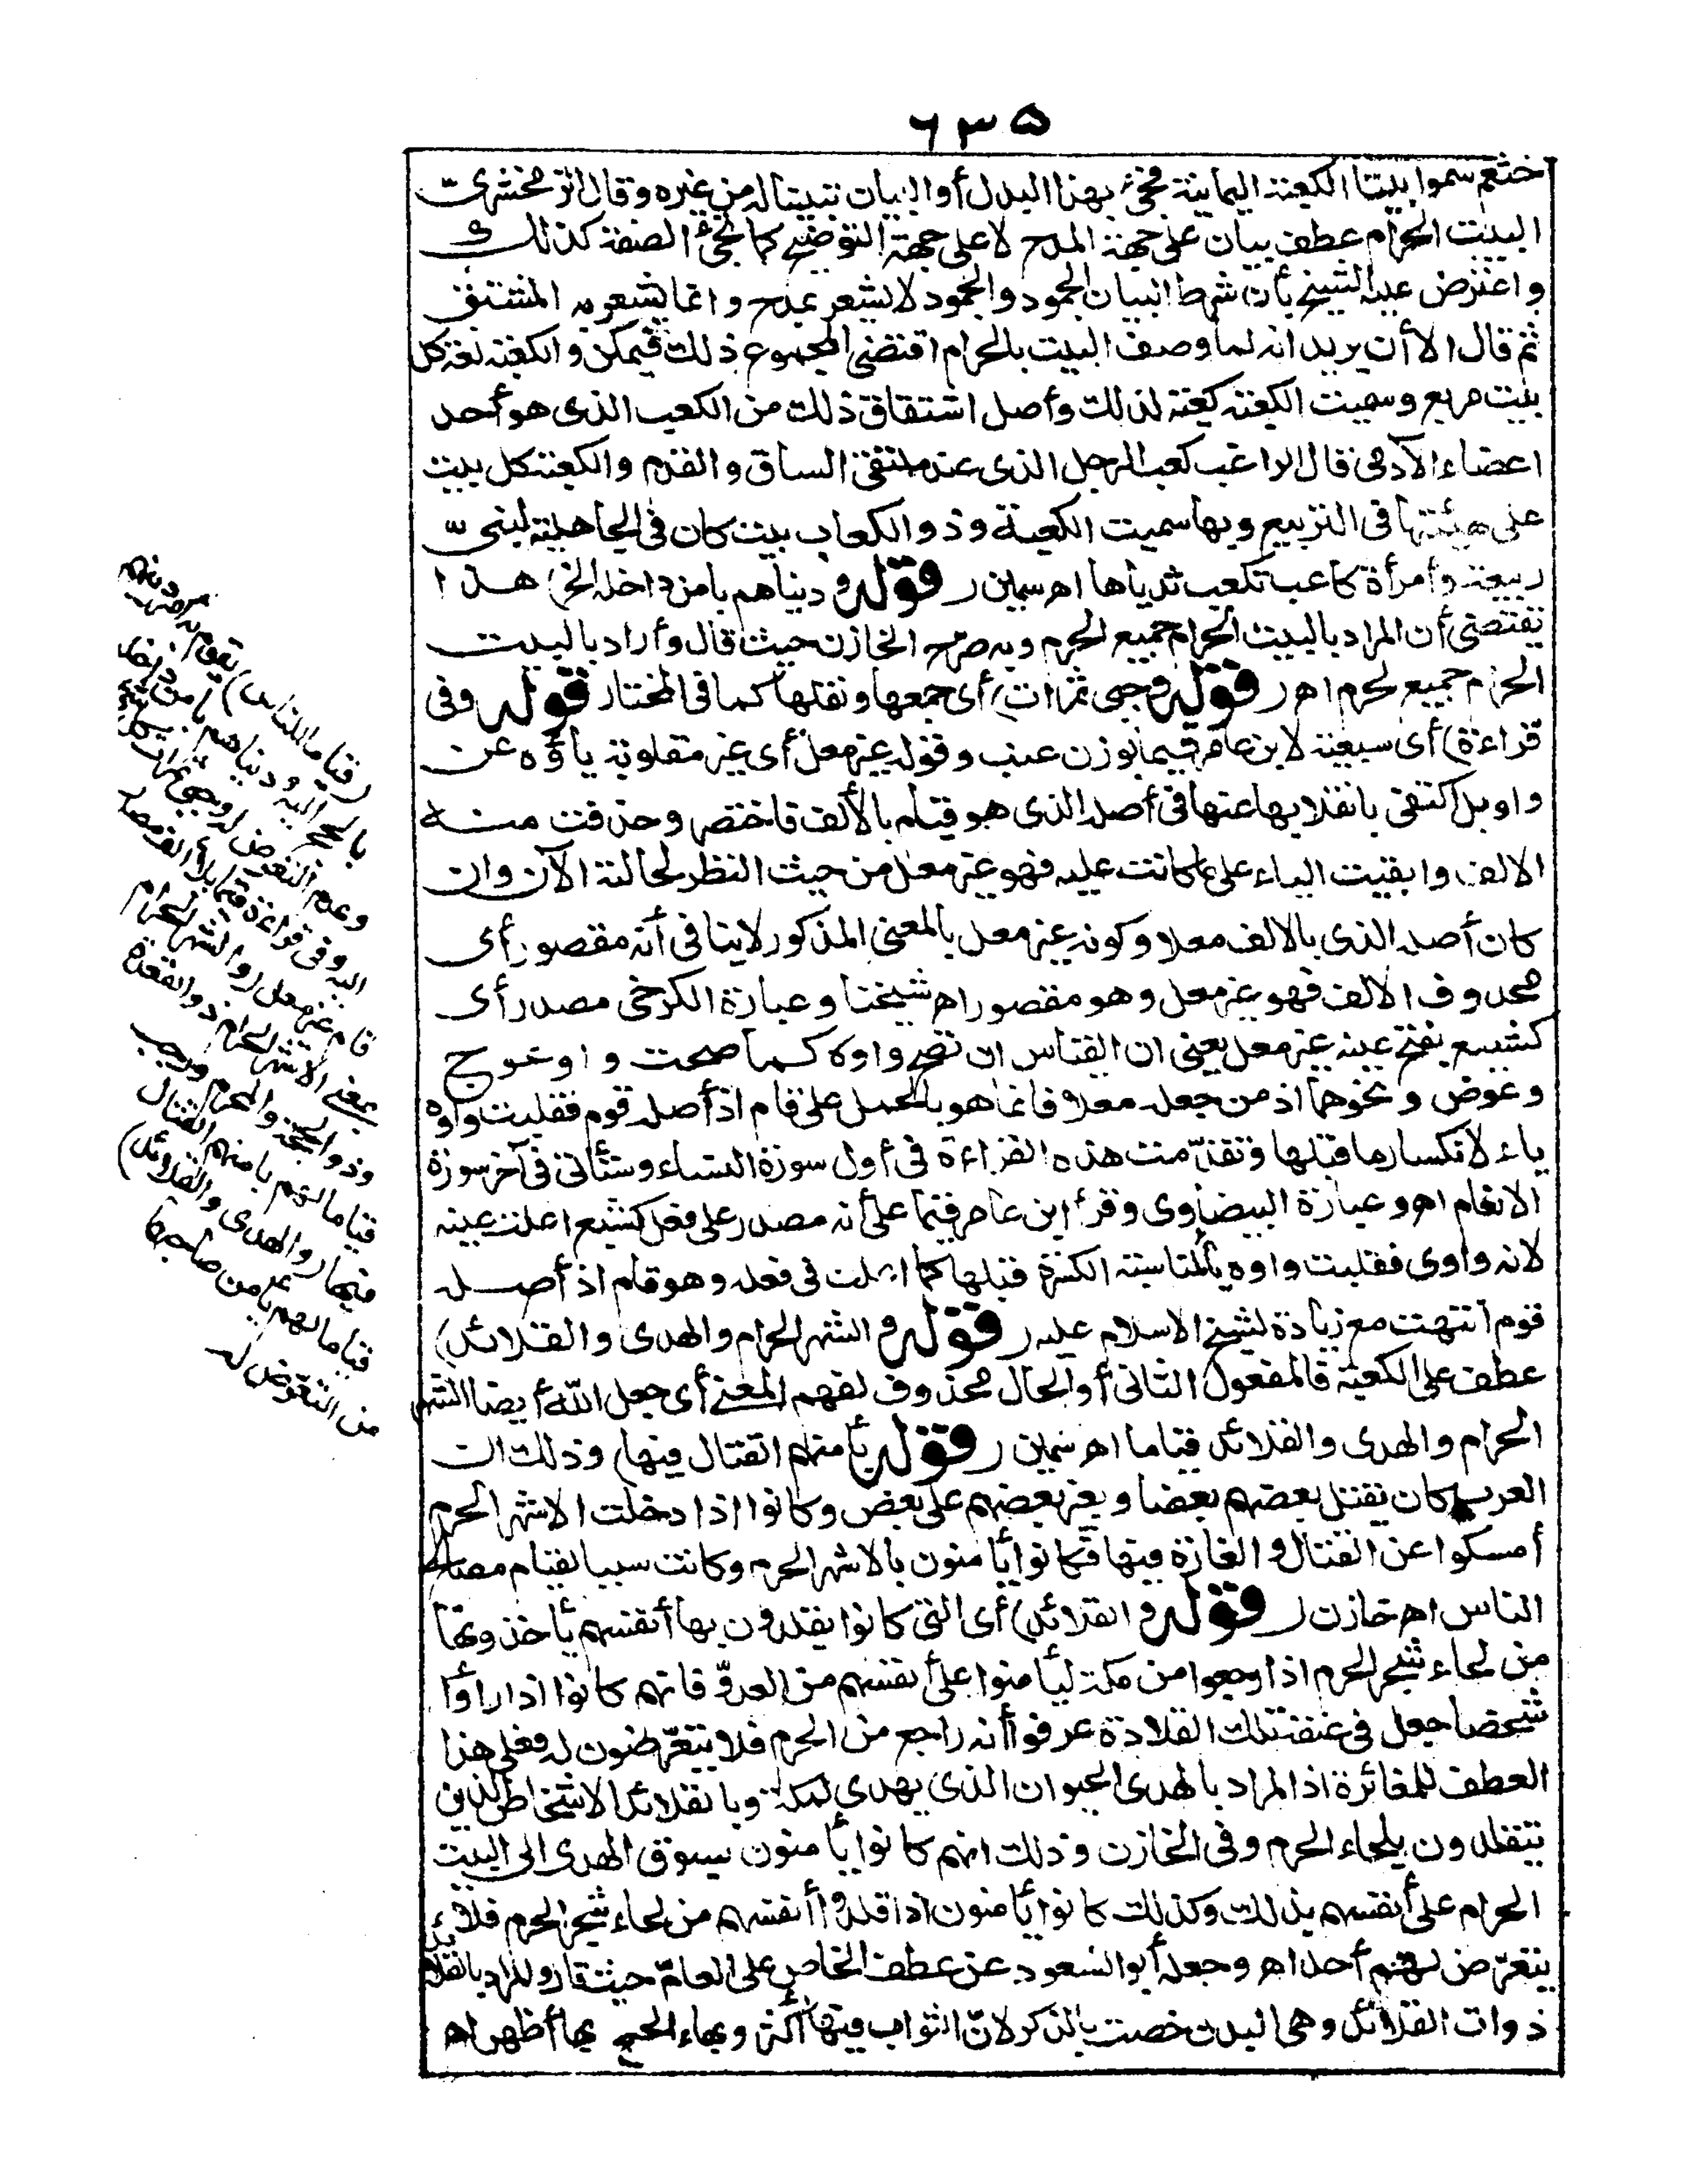 ٦٣٥
خثعم سموا بيتا الكعبة اليمانية فجئ بهذا البدل أو البيان تبيينا له من غيره وقال الزمخشرى
البيت الحرام عطف بيان على جهة المدح لا على جهة التوضيح كما تجئ الصفة كذلك
واعترض عليه الشيخ بأن شرط البيان الجمود والجمود لا يشعر بمدح وانما يشعر به المشتق
ثم قال الا أن يريد انه لما وصف البيت بالحرام اقتضى المجموع ذلك فيمكن والكعبة لغة كل
بيت مربع وسميت الكعبة كعبة لذلك وأصل اشتقاق ذلك من الكعب الذى هو أحد
اعضاء الآدمى قال الراغب كعب الرجل الذى عند ملتقى الساق والقدم والكعبة كل بيت
على هيئتها فى التربيع وبها سميت الكعبة وذو الكعاب بيت كان فى الجاهلية لبنى
ربيعة وأمرأة كاعب تكعب ثدياها اه سمين (قوله ودنياهم بأمن داخله الخ) هذا
يقتضى أن المراد بالبيت الحرام جميع الحرم وبه صرح الخازن حيث قال وأراد بالبيت
الحرام جميع لحرم اه (قوله وجبى ثمرات) أى جمعها ونقلها كما فى المختار قوله وفى
قراءة) أى سبعية لابن عامر قيما بوزن عنب وقوله غير معل أى غير مقلوبة ياؤه عن
واو بل اكتفى بانقلابها عنها فى أصله الذى هو قيام بالألف فاختصر وحذفت منه
الالف وابقيت الياء على ما كانت عليه فهو غير معل من حيث النظر لحالته الآن وان
كان أصله الذى بالالف معلا وكونه غير معل بالمعنى المذكور لا ينافى أنه مقصور أى
محذوف الالف فهو غير معل وهو مقصور اه شيخنا وعبارة الكرخى مصدر أى
كشبع بفتح عينه غير معل يعنى ان القياس ان تصح واوه كما صحت واو عوج
وعوض ونحوهما اذ من جعله معلا فانما هو بالحمل على قام اذ أصله قوم فقلبت واوه
ياء لانكسار ما قبلها وتقدّمت هذه القراءة فى أول سورة النساء وستأتى فى آخر سورة
الانعام اه وعبارة البيضاوى وقرأ ابن عامر قيما على أنه مصدر على فعل كشبع اعلت عينه
لانه واوى فقلبت واوه ياء لمناسبة الكسرة قبلها كما اعلت فى فعله وهو قام اذ أصله
قوم انتهت مع زيادة لشيخ الاسلام عليه (قوله والشهر الحرام والهدى والقلائد)
عطف على الكعبة فالمفعول الثانى أو الحال محذوف لفهم المعنى أى جعل الله أيضا الشهر
الحرام والهدى والقلائد قياما اه سمين (قوله بأمنهم القتال فيها) وذلك ان
العرب كان يقتل بعضهم بعضا ويغير بعضهم على بعض وكانوا اذا دخلت الاشهر الحرم
أمسكوا عن القتال والغارة فيها فكانوا يأمنون بالاشهر الحرم وكانت سببا لقيام مصالح
الناس اه خازن (قوله والقلائد) أى التى كانوا يقلدون بها أنفسهم يأخذونها
من لحاء شجر الحرم اذا رجعوا من مكة ليأمنوا على أنفسهم من العدوّ فانهم كانوا اذا رأوا
شخصا جعل فى عنقه تلك القلادة عرفوا أنه راجع من الحرم فلا يتعرّضون له فعلى هذا
العطف للمغائرة اذ المراد بالهدى الحيوان الذى يهدى لمكة وبالقلائد الاشخاص الذين
يتقلدون بلحاء الحرم وفى الخازن وذلك انهم كانوا يأمنون بسوق الهدى الى البيت
الحرام على أنفسهم بذلك وكذلك كانوا يأمنون اذا قلدوا أنفسهم من لحاء شجر الحرم فلا
يتعرّض لهم أحد اه وجعله أبو السعود عن عطف الخاص على العامّ حيث قال والمراد بالقلائد
ذوات القلائد وهى البدن خصت بالذكر لانّ الثواب فيها أكثر وبهاء الحج بها أظهر اه
(قياما للناس) يقوم به أمر دينهم
بالحج اليه ودنياهم بأمن داخله
وعدم التعرض له وجبى ثمرات كل شئ
اليه وفى قراءة قيما بلا ألف مصدر
قام غير معل (والشهر الحرام)
بمعنى الاشهر الحرم ذو القعدة
وذو الحجة والمحرم ورجب
قياما لهم بأمنهم القتال
فيها (والهدى والقلائد)
قياما لهم بأمن صاحبهما
من التعرض له